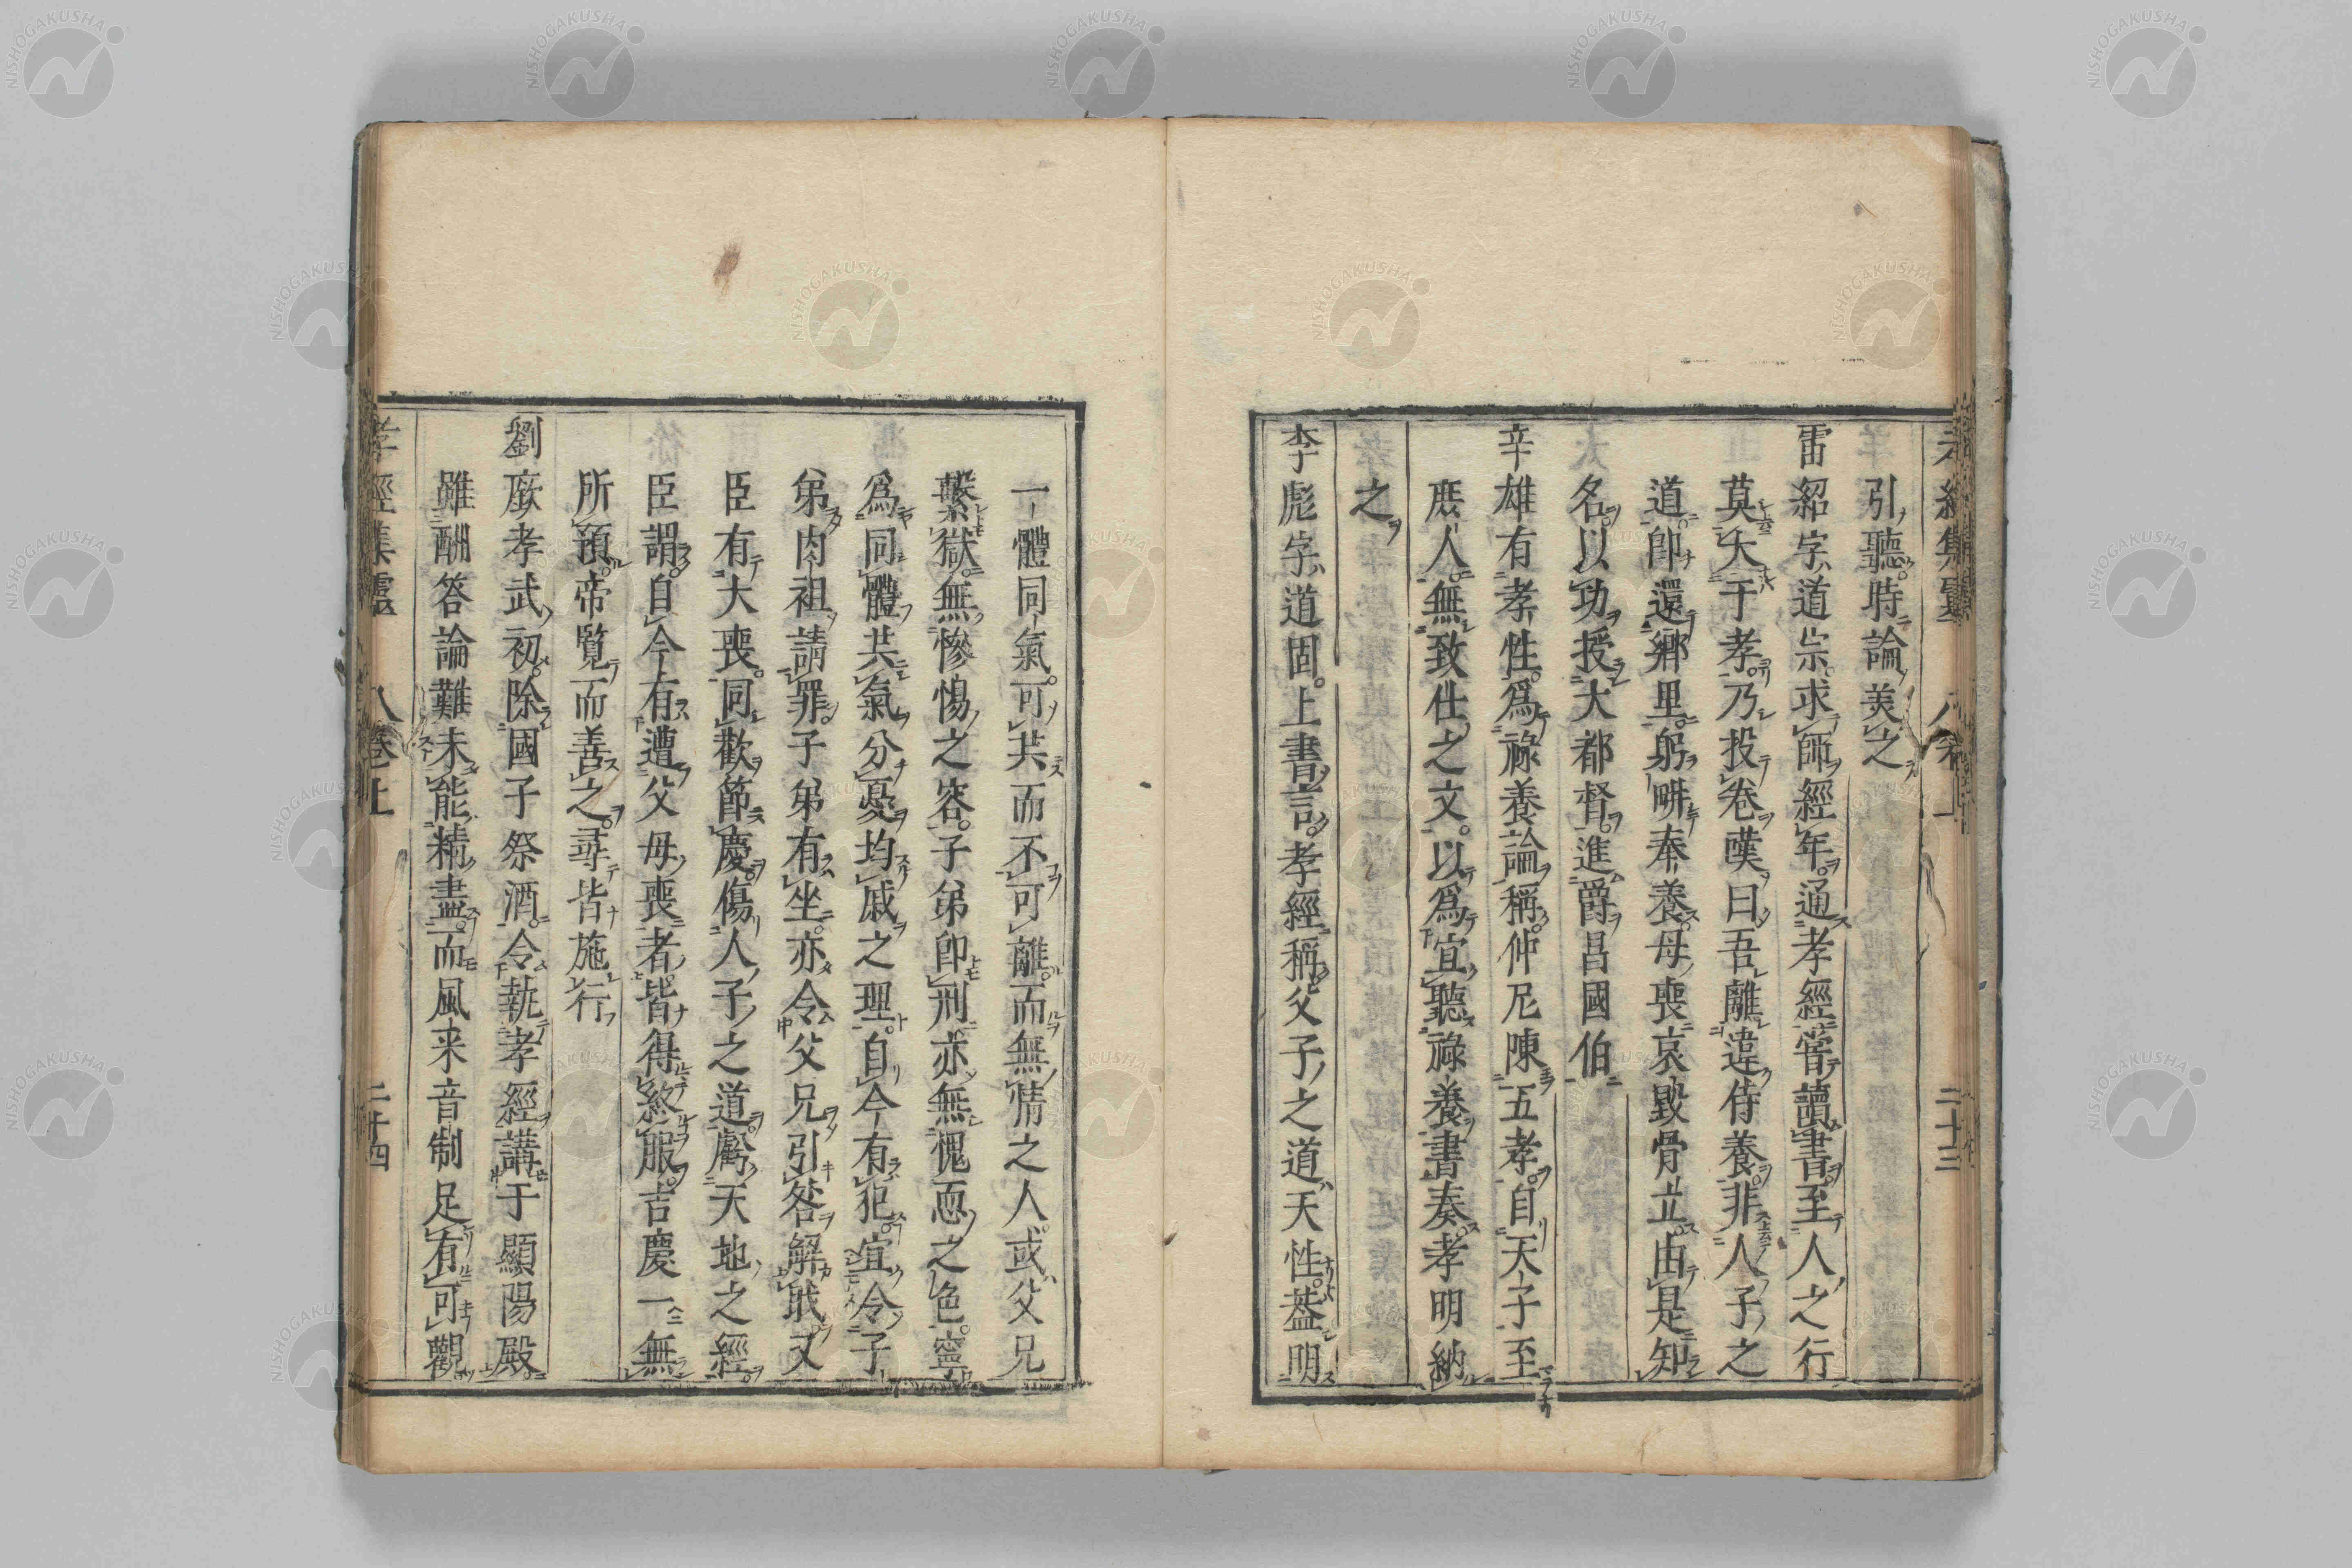 引聽時論美之
雷紹字道宗求師經年通孝經嘗讀書至人之行
莫大于孝乃投卷嘆曰吾離違侍養非人子之
道即還鄉里躬畊奉養母喪哀毀骨立由是知
名以功授大都督進爵昌國伯
辛雄有孝性爲祿養論稱仲尼陳五孝自天子至
庶人無致仕之文以爲宜聽祿養書奏孝明納
之
李彪字道固上書言孝經稱父子之道天性葢明
一體同氣可共而不可離而無情之人或父兄
繫獄無慘惕之容子弟即刑亦無愧恧之色寧
爲同體共氣分憂均戚之理自今有犯宜令子
弟肉袒請罪子弟有坐亦令父兄引咎解職又
臣有大喪同歡節慶傷人子之道虧天地之經
臣謂自今有遭父母喪者皆得終服吉慶一無
所預帝覽而善之尋皆施行
劉廞孝武初除國子祭酒令執孝經講于顯陽殿
雖酬答論難未能精盡而風来音制足有可觀
孝經集靈 卷上 二十四
二十三
NISHOGAKUSHA